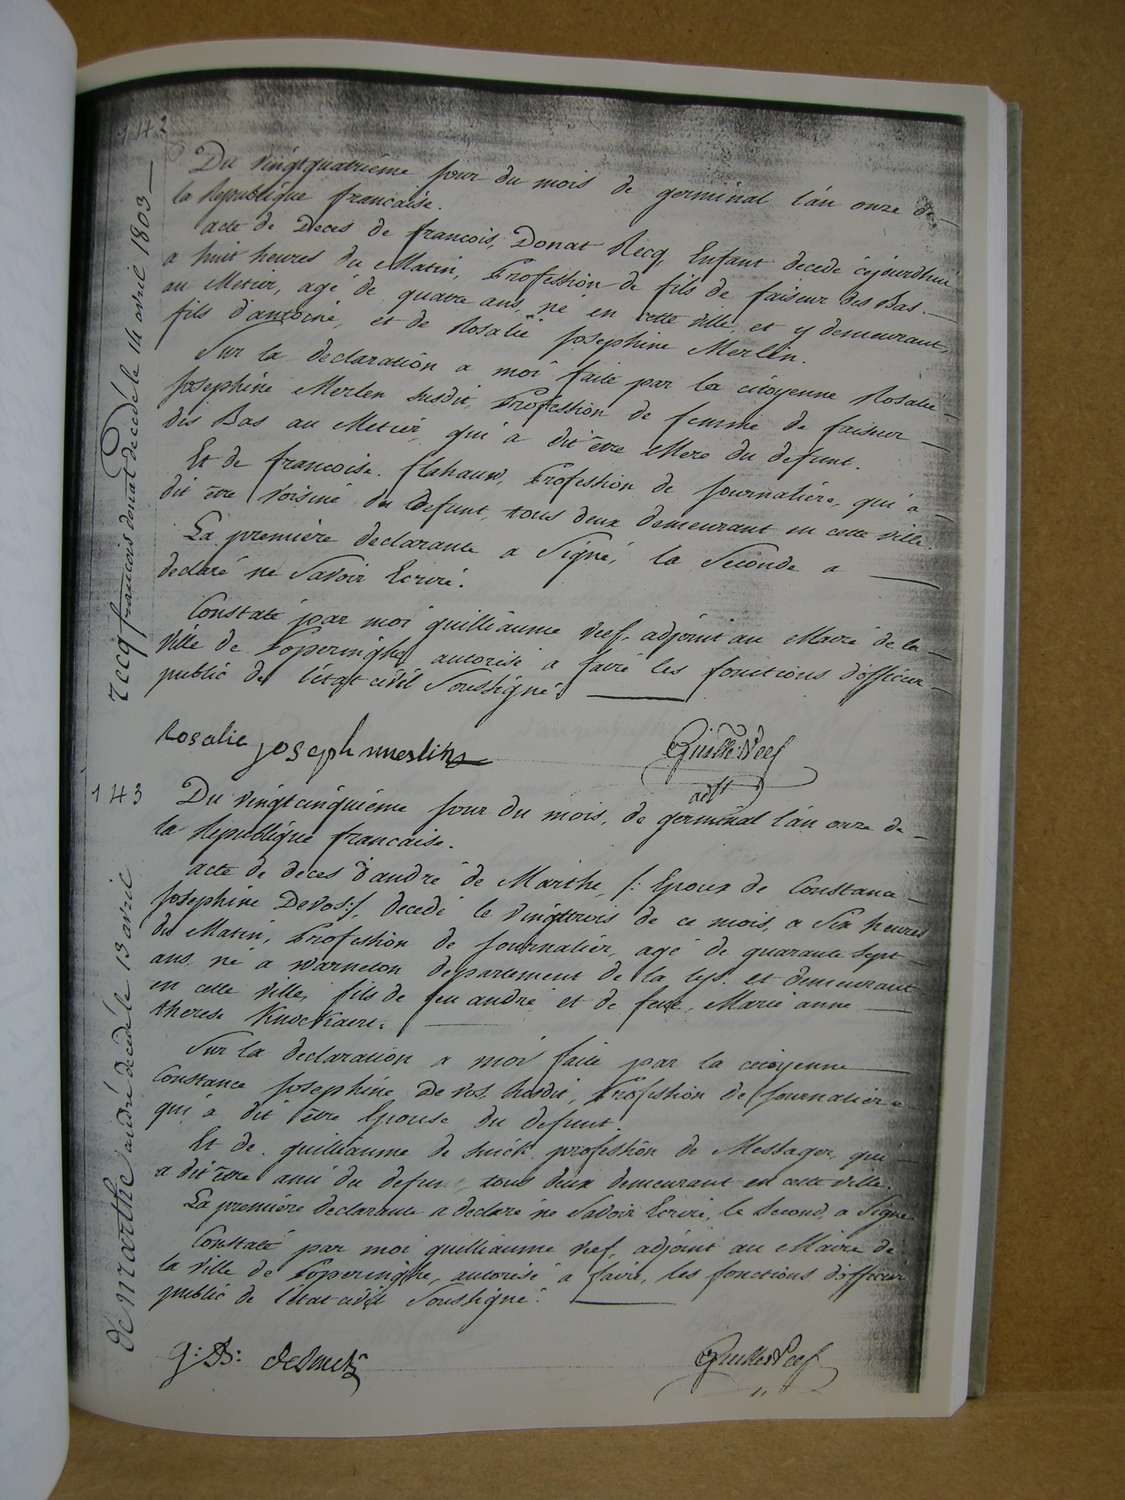 142
recq francois donat décédé le 14 avril 1803 —
Du vingtquatriéme jour du mois de germinal l'an onze de
la Republique francaise.
acte de Deces de francois Donat Recq, Enfant decedé cejourdhui
a huit heures du Matin, Profession de fils de faiseur des Bas
au Métier, agé de quatre ans, né en cette ville, et y demeurant,
fils d'antoine, et de Rosalie Josephine Merlin.
Sur la declaration a moi faite par la citoyenne Rosalie
Josephine Merlen susdit, Profession de femme de faiseur
des Bas au Metier, qui a dit être Mere du defunt.
Et de francoise flahauw, Profession de Journaliére, qui a
dit être voisine du Defunt, tous deux demeurant en cette ville.
La premiére declarante a Signé, la Seconde a
declaré ne Savoir Ecrire.
Constaté par moi guilliaume Neef, adjoint au Maire de la
ville de Poperinghe, autorisé a faire les fonctions d'officier
public de l'état civil Soussigné.
Rosalie joseph merlin
Guille Neef
adjt
143
de marthe andré décédé le 13 avril
Du vingtcinquiéme jour du mois, de germinal l'an onze de
la Republique francaise.
acte de deces d'andré de Marthe, /: Epoux de Constance
Josephine Devos:/, decedé le vingttrois de ce mois, a Six heures
du Matin, Profession de Journalier, agé de quarante Sept
ans, né a Warneton departement de la Lys. et demeurant
en cette ville, fils de feu andré et de feue, Marie anne
therese Knockaert.
Sur la declaration a moi faite par la citoyenne
Constance Josephine De vos susdit, Profession de Journaliére
qui a dit être Epouse du defunt.
Et de guilliaume de profession de Messager, qui
a dit être ami du defunt, tous deux demeurant en cette ville.
La premiére declarante a declaré ne Savoir Ecrire, le Second, a Signé
Constaté par moi guilliaume Neef, adjoint au Maire de
la ville de Poperinghe, autorisé a faire, les fonctions d'officier
public de l'état civil Soussigné.
g: B:
Guille Neef